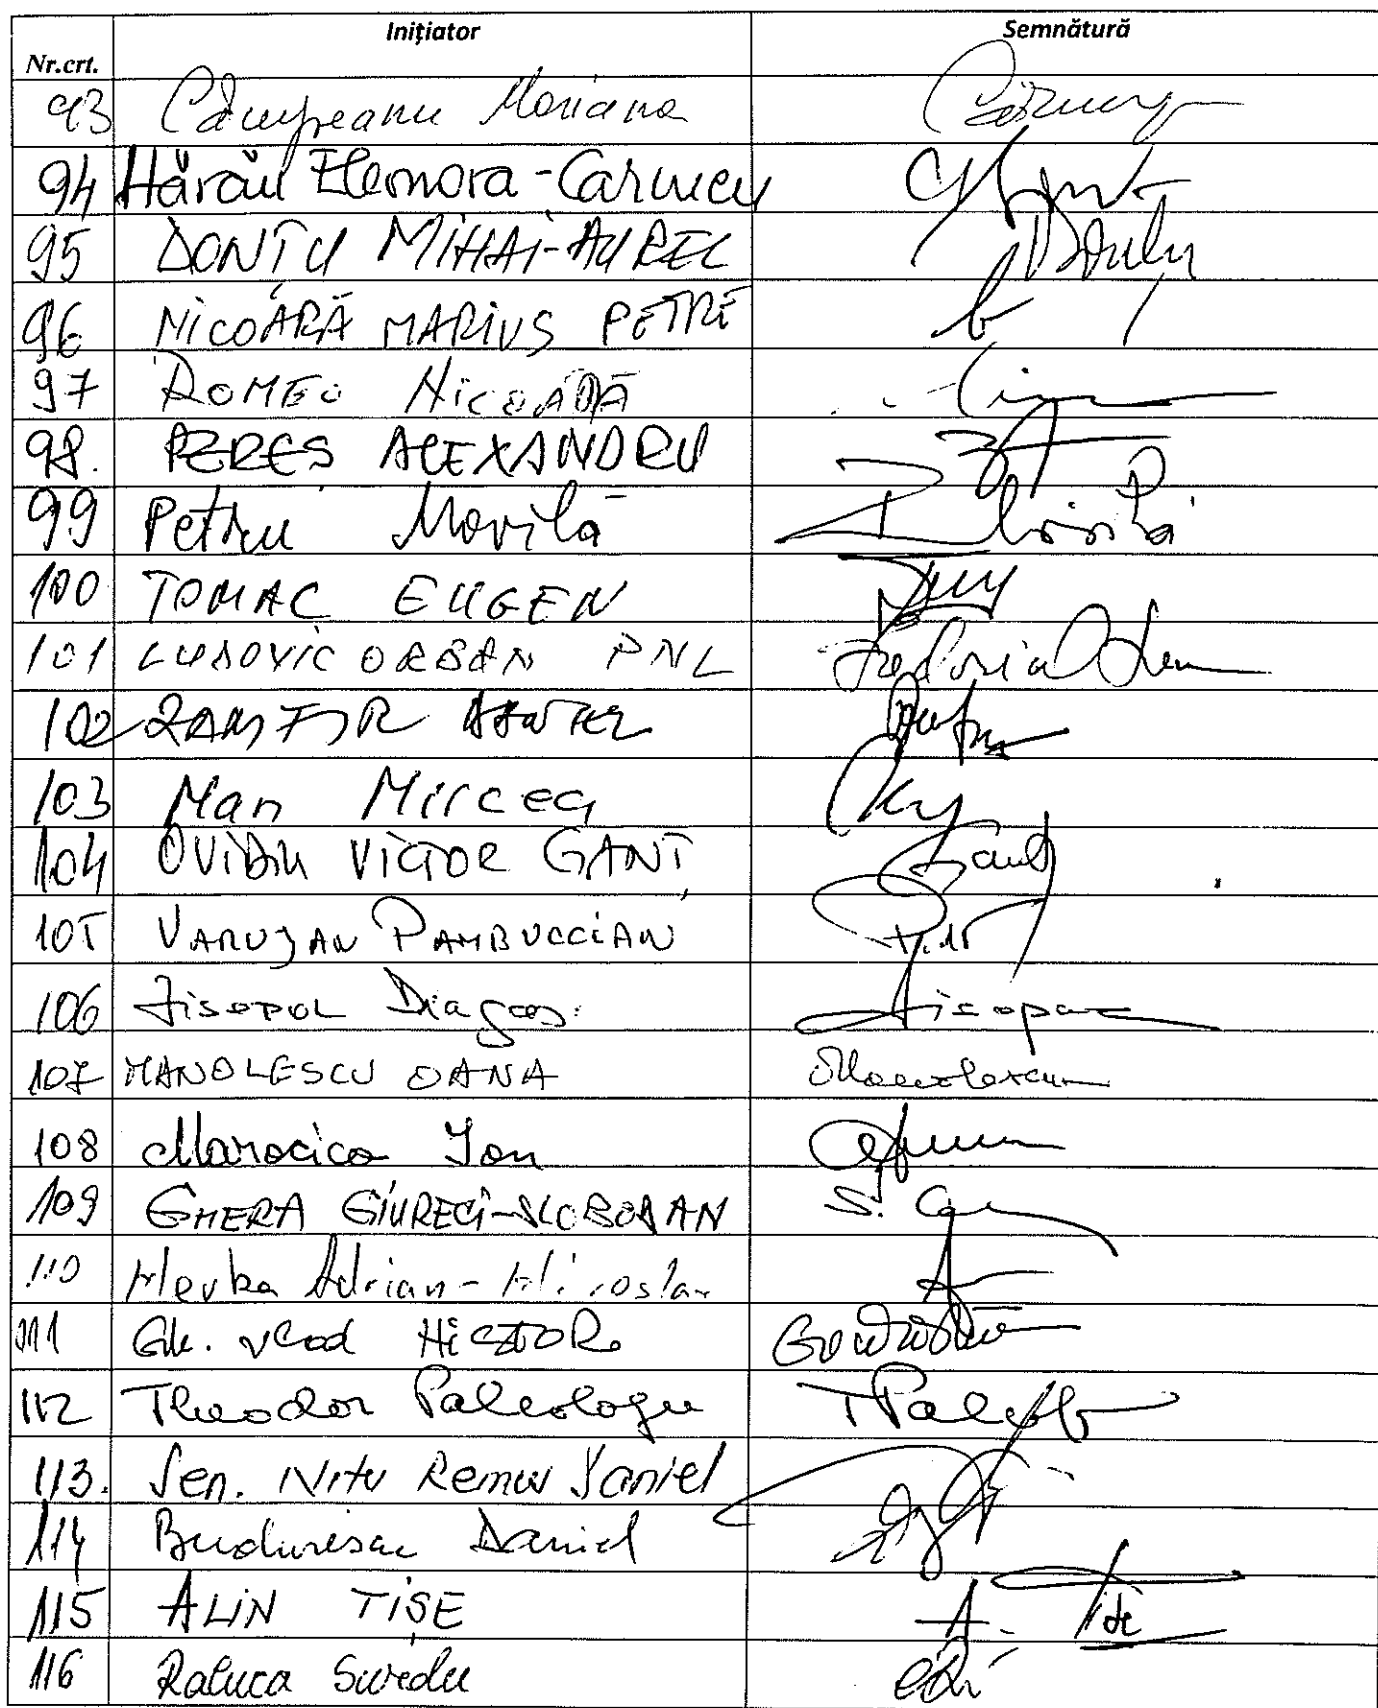 Inițiator Semnătură
Nr.crt.
93 Câmpeanu Mariana
94 Hărău Elenora-Carmen
95 DONȚU MIHAI-AUREL
96 NICOARĂ MARIUS PETRE
97 ROMEO NICOARĂ
98. PERES ALEXANDRU
99 Petru Movilă
100 TOMAC EUGEN
101 LUDOVIC ORBAN PNL
102 ZAMFIR DANIEL
103 Man Mircea
104 OVIDIU VICTOR GANȚ
105 VARUJAN PAMBUCCIAN P.V
106 Zisopol Dragos Zisopol
107 MANOLESCU OANA OManolescu
108 Marocico Ion
109 GHERA GIURECI-SLOBODAN S. G
110 Merka Adrian-Miroslav
111 Gh. Vlad NISTOR
112 Theodor Paleologu TPaleologu
113. Sen. Nitu Remus Daniel
114 Budurescu Daniel
115 ALIN TIȘE A. Tișe
116 Raluca Surdu